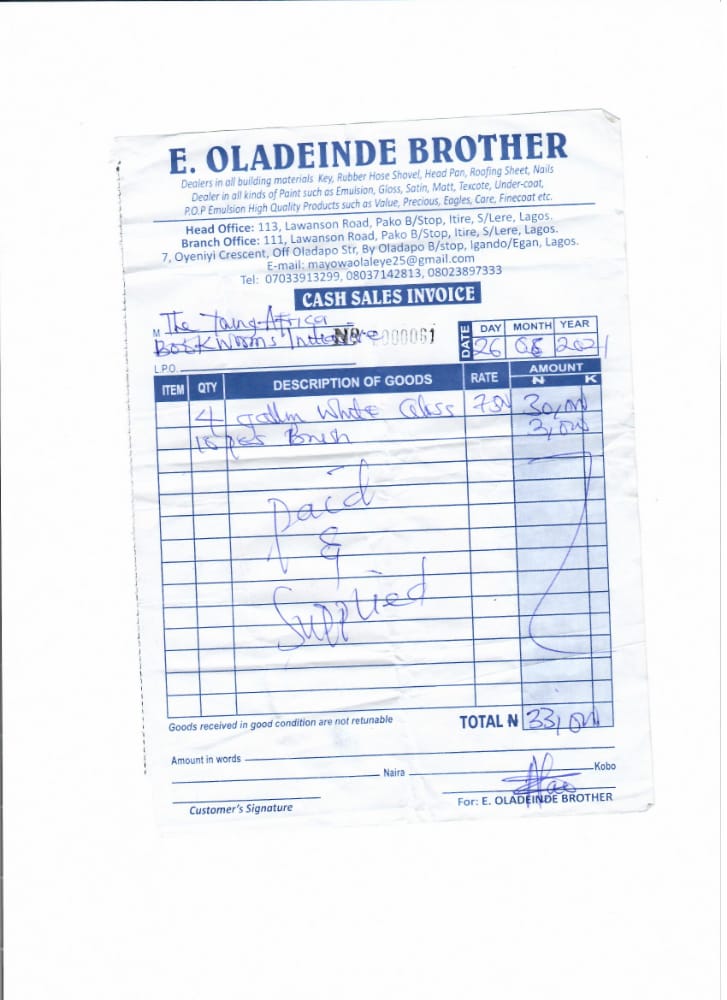 E. OLADEINDE BROTHER
Dealers in all building materials Key, Rubber Hose Shovel, Head Pan, Roofing Sheet, Nails
Dealer in all kinds of Paint such as Emulsion, Gloss, Satin, Matt, Texcote, Under-coat,
P.O.P Emulsion High Quality Products such as Value, Precious, Eagles, Care, Finecoat etc.
Head Office: 113, Lawanson Road, Pako B/Stop, Itire, S/Lere, Lagos.
Branch Office: 111, Lawanson Road, Pako B/Stop, Itire, S/Lere, Lagos.
7, Oyeniyi Crescent, Off Oladapo Str, By Oladapo B/stop, Igando/Egan, Lagos.
E-mail: mayowaolaleye25@gmail.com
Tel: 07033913299, 08037142813, 08023897333
CASH SALES INVOICE
M The Young-Africa
Bookworms
DATE DAY MONTH YEAR
26 08 2021
L.P.O.
ITEM QTY DESCRIPTION OF GOODS RATE AMOUNT
₦ K
4 gallon White Gloss
Brush
Paid
&
Supplied
Goods received in good condition are not retunable
TOTAL ₦ 33,000
Amount in words
Naira Kobo
Customer's Signature
For: E. OLADEINDE BROTHER